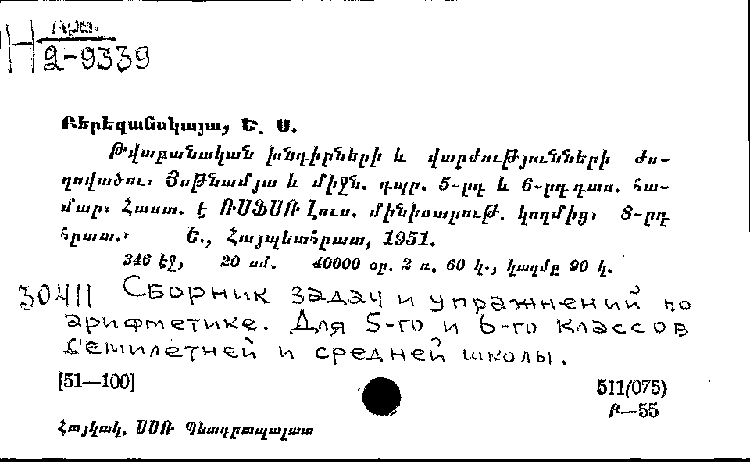 Արմ.
Н 2-9339
Բերեզանսկայա, Ե. Ս.
Թվաբանական խնդիրների և վարժությունների ժո-
ղովածու: Յոթնամյա և միջն. դպր. 5-րդ և 6-րդ դաս. հա-
մար: Հաստ. է ՌՍՖՍՌ Լուս. մինիստրութ. կողմից: 8-րդ
հրատ.: Ե., Հայպետհրատ, 1951.
346 էջ, 20 սմ. 40000 օր. 2 ռ. 60 կ., կազմը 90 կ.
30411 Сборник задач и упражнений по
арифметике. Для 5-го и 6-го классов
семилетней и средней школы.
[51—100]
511(075)
Բ—55
Հայկակ. ՍՍՌ Պետգրապալատ